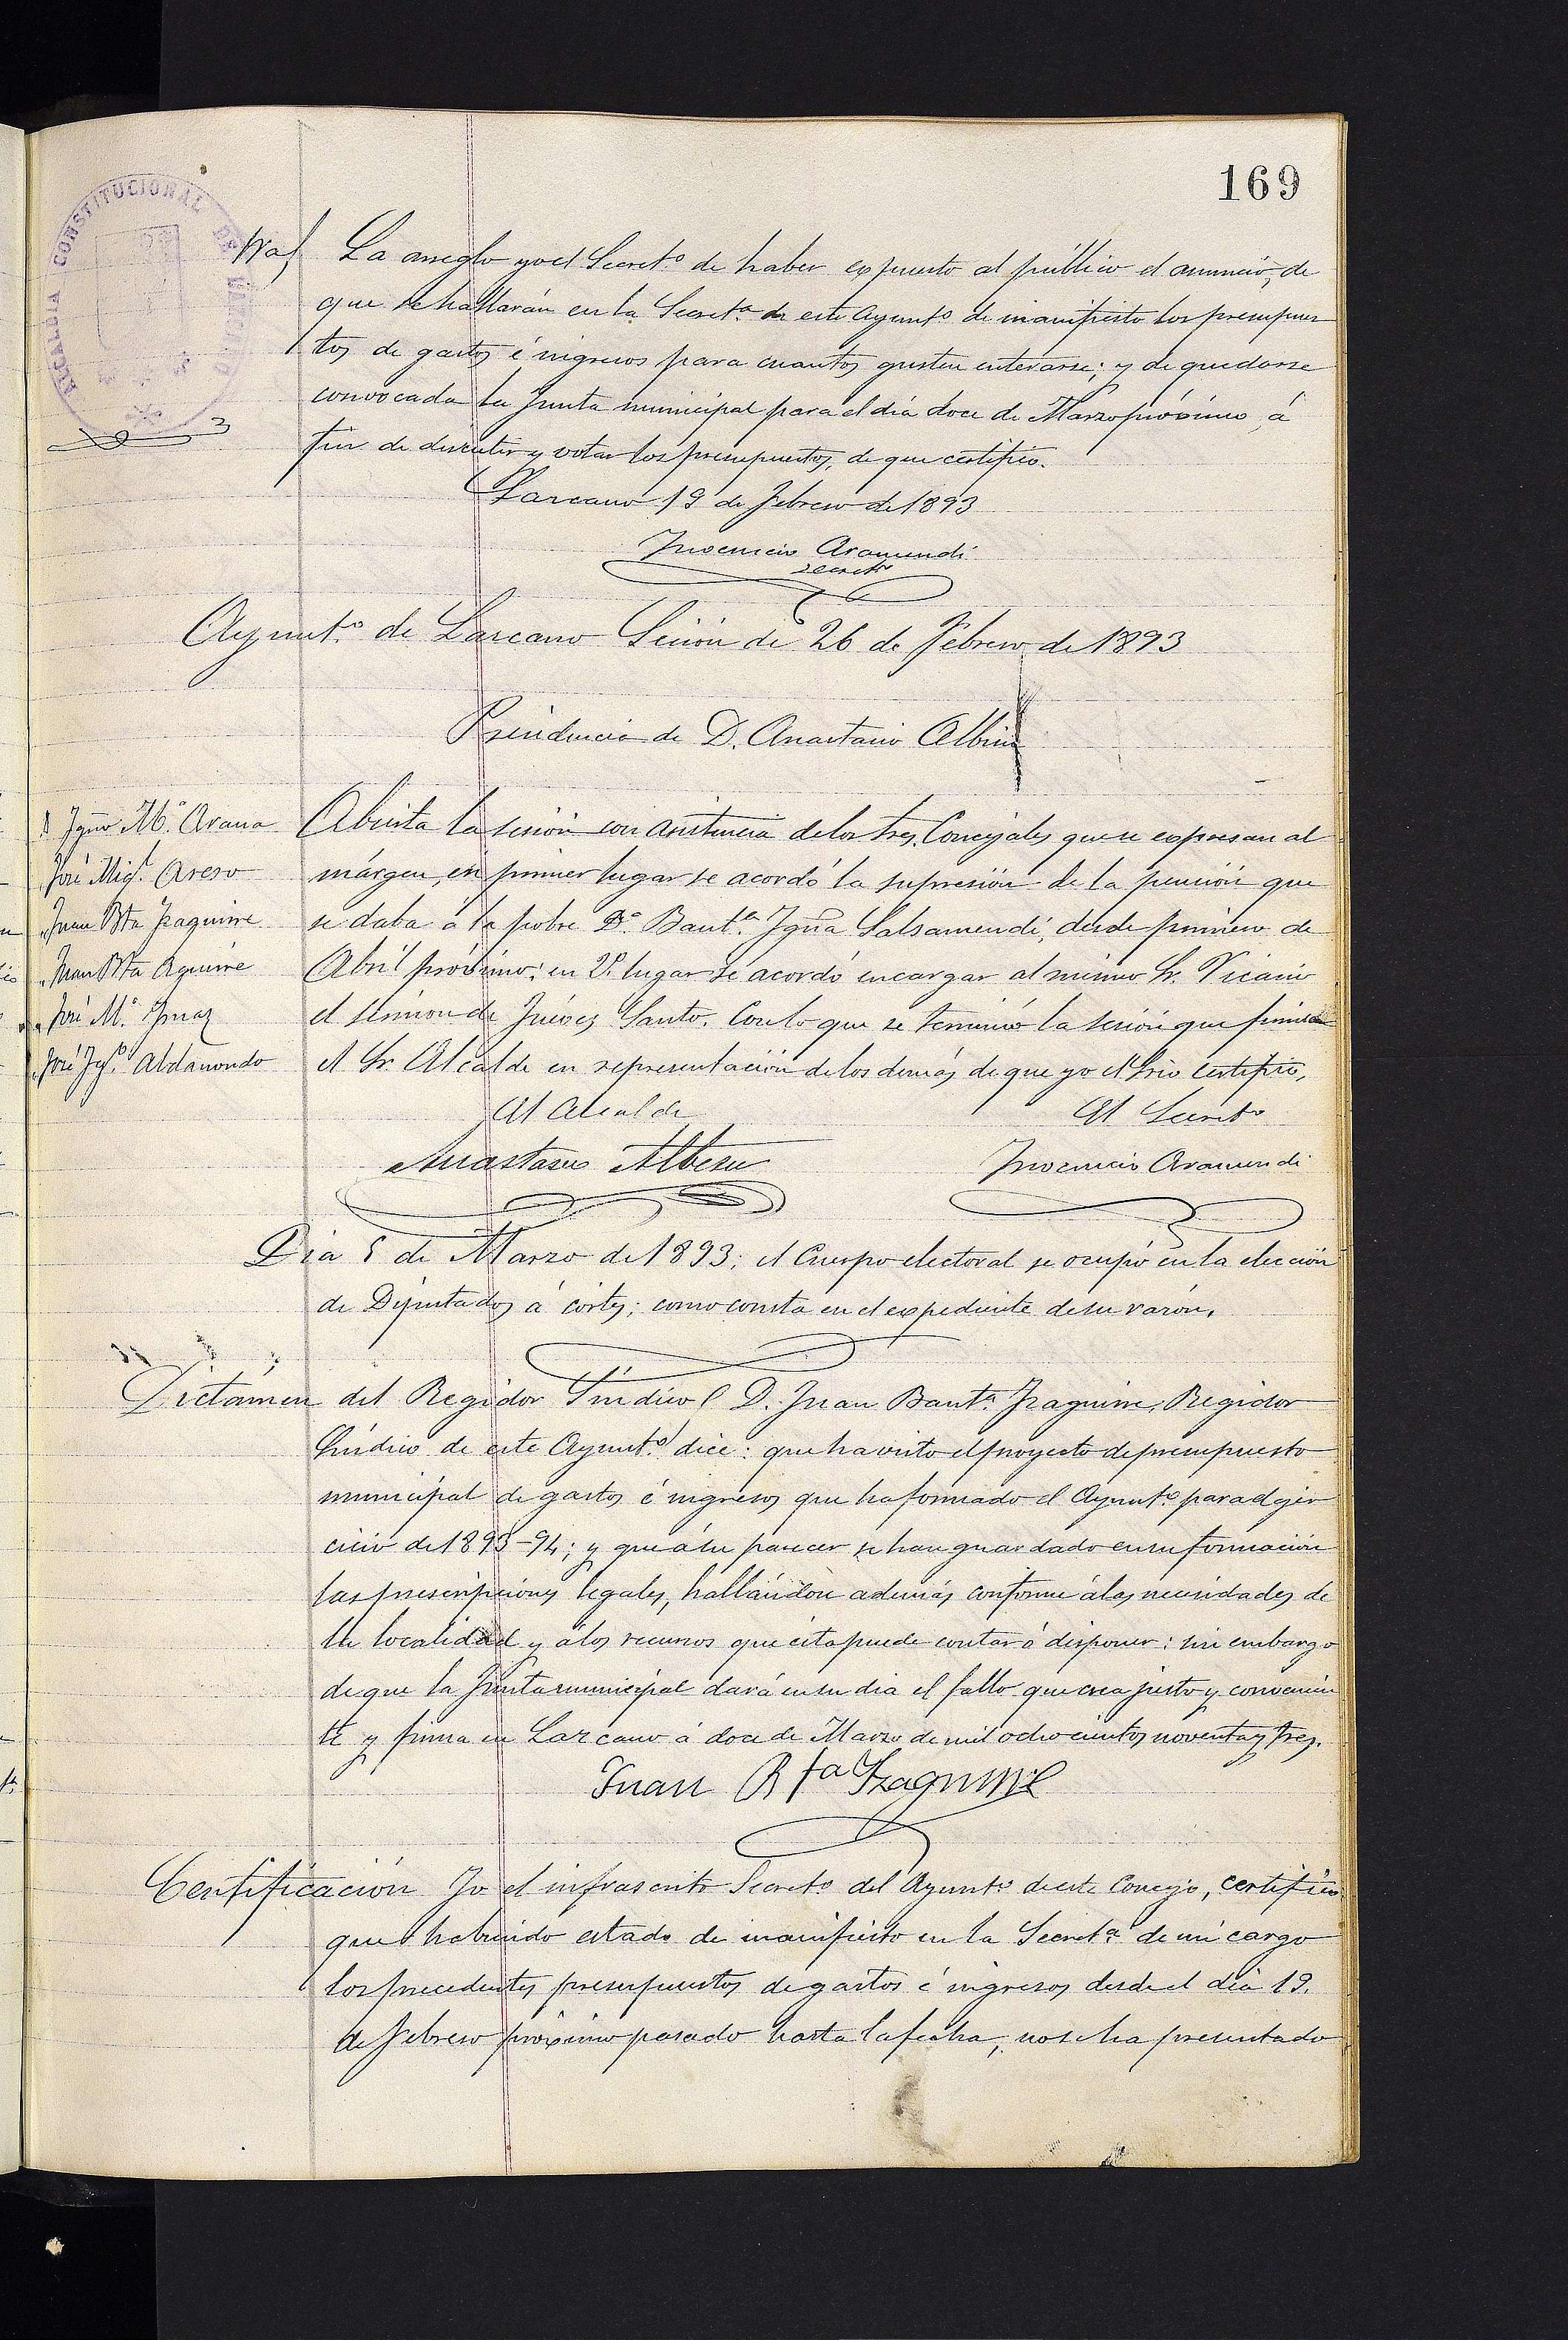 169
ALCALDIA CONSTITUCIONAL DE LAZCANO
La arreglo yo el Secret.º de haber expuesto al público el anuncio, de
que se hallarán en la Secret.ª de este Ayunt.º de manifiesto los presupues
tos de gastos é ingresos para cuantos gusten enterarse; y de quedarse
convocada la Junta municipal para el dia doce de Marzo próximo, á
fin de discutir y votar los presupuestos, de que certifico.
Lazcano 19 de Febrero de 1893
Inocencio Aramendi
secret.º
Ayunt.º de Lazcano Sesión de 26 de Febrero de 1893
Presidencia de D. Anastasio Albisu
D. Igno M.ª Arana
" José Mig.l Areso
" Juan Bta Izaguirre
" Juan Bta Aguirre
" José M.ª Ymaz
" José Ig.º Aldanondo
Abierta la sesión con asistencia de los tres Concejales que se expresan al
márgen, en primer lugar se acordó la supresión de la pensión que
se daba á la pobre D.ª Baut.ª Igna Salsamendi, desde primero de
Abril próximo; en 2.º lugar se acordó encargar al mismo Sr. Vicario
el sermon de Juéves Santo. Con lo que se terminó la sesión que firmará
el Sr. Alcalde en representación de los demás de que yo el Srio certifico,
El Alcalde
El Secret.º
Anastasio Albisu
Inocencio Aramendi
Dia 5 de Marzo de 1893; el Cuerpo electoral se ocupó en la elección
de Diputados á cortes; como consta en el expediente de su razón.
Dictámen del Regidor Síndico { D. Juan Baut.ª Izaguirre, Regidor
Síndico de este Ayunt.º dice: que ha visto el proyecto de presupuesto
municipal de gastos é ingresos que ha formado el Ayunt.º para el ejer
cicio de 1893-94; y que á su parecer se han guardado en su formación
las prescripciones legales, hallándose además conforme á las necesidades de
la localidad y á los recursos que ésta puede contar ó disponer: sin embargo
de que la Junta municipal dará en su dia el fallo que crea justo y convenien
te y firma en Lazcano á doce de Marzo de mil ochocientos noventa y tres.
Juan Bta Izaguirre
Certificación Yo el infrascrito Secret.º del Ayunt.º de este Concejo, certifico
que habiendo estado de manifiesto en la Secret.ª de mi cargo
los precedentes presupuestos de gastos é ingresos desde el dia 19.
de Febrero próximo pasado hasta la fecha, no se ha presentado